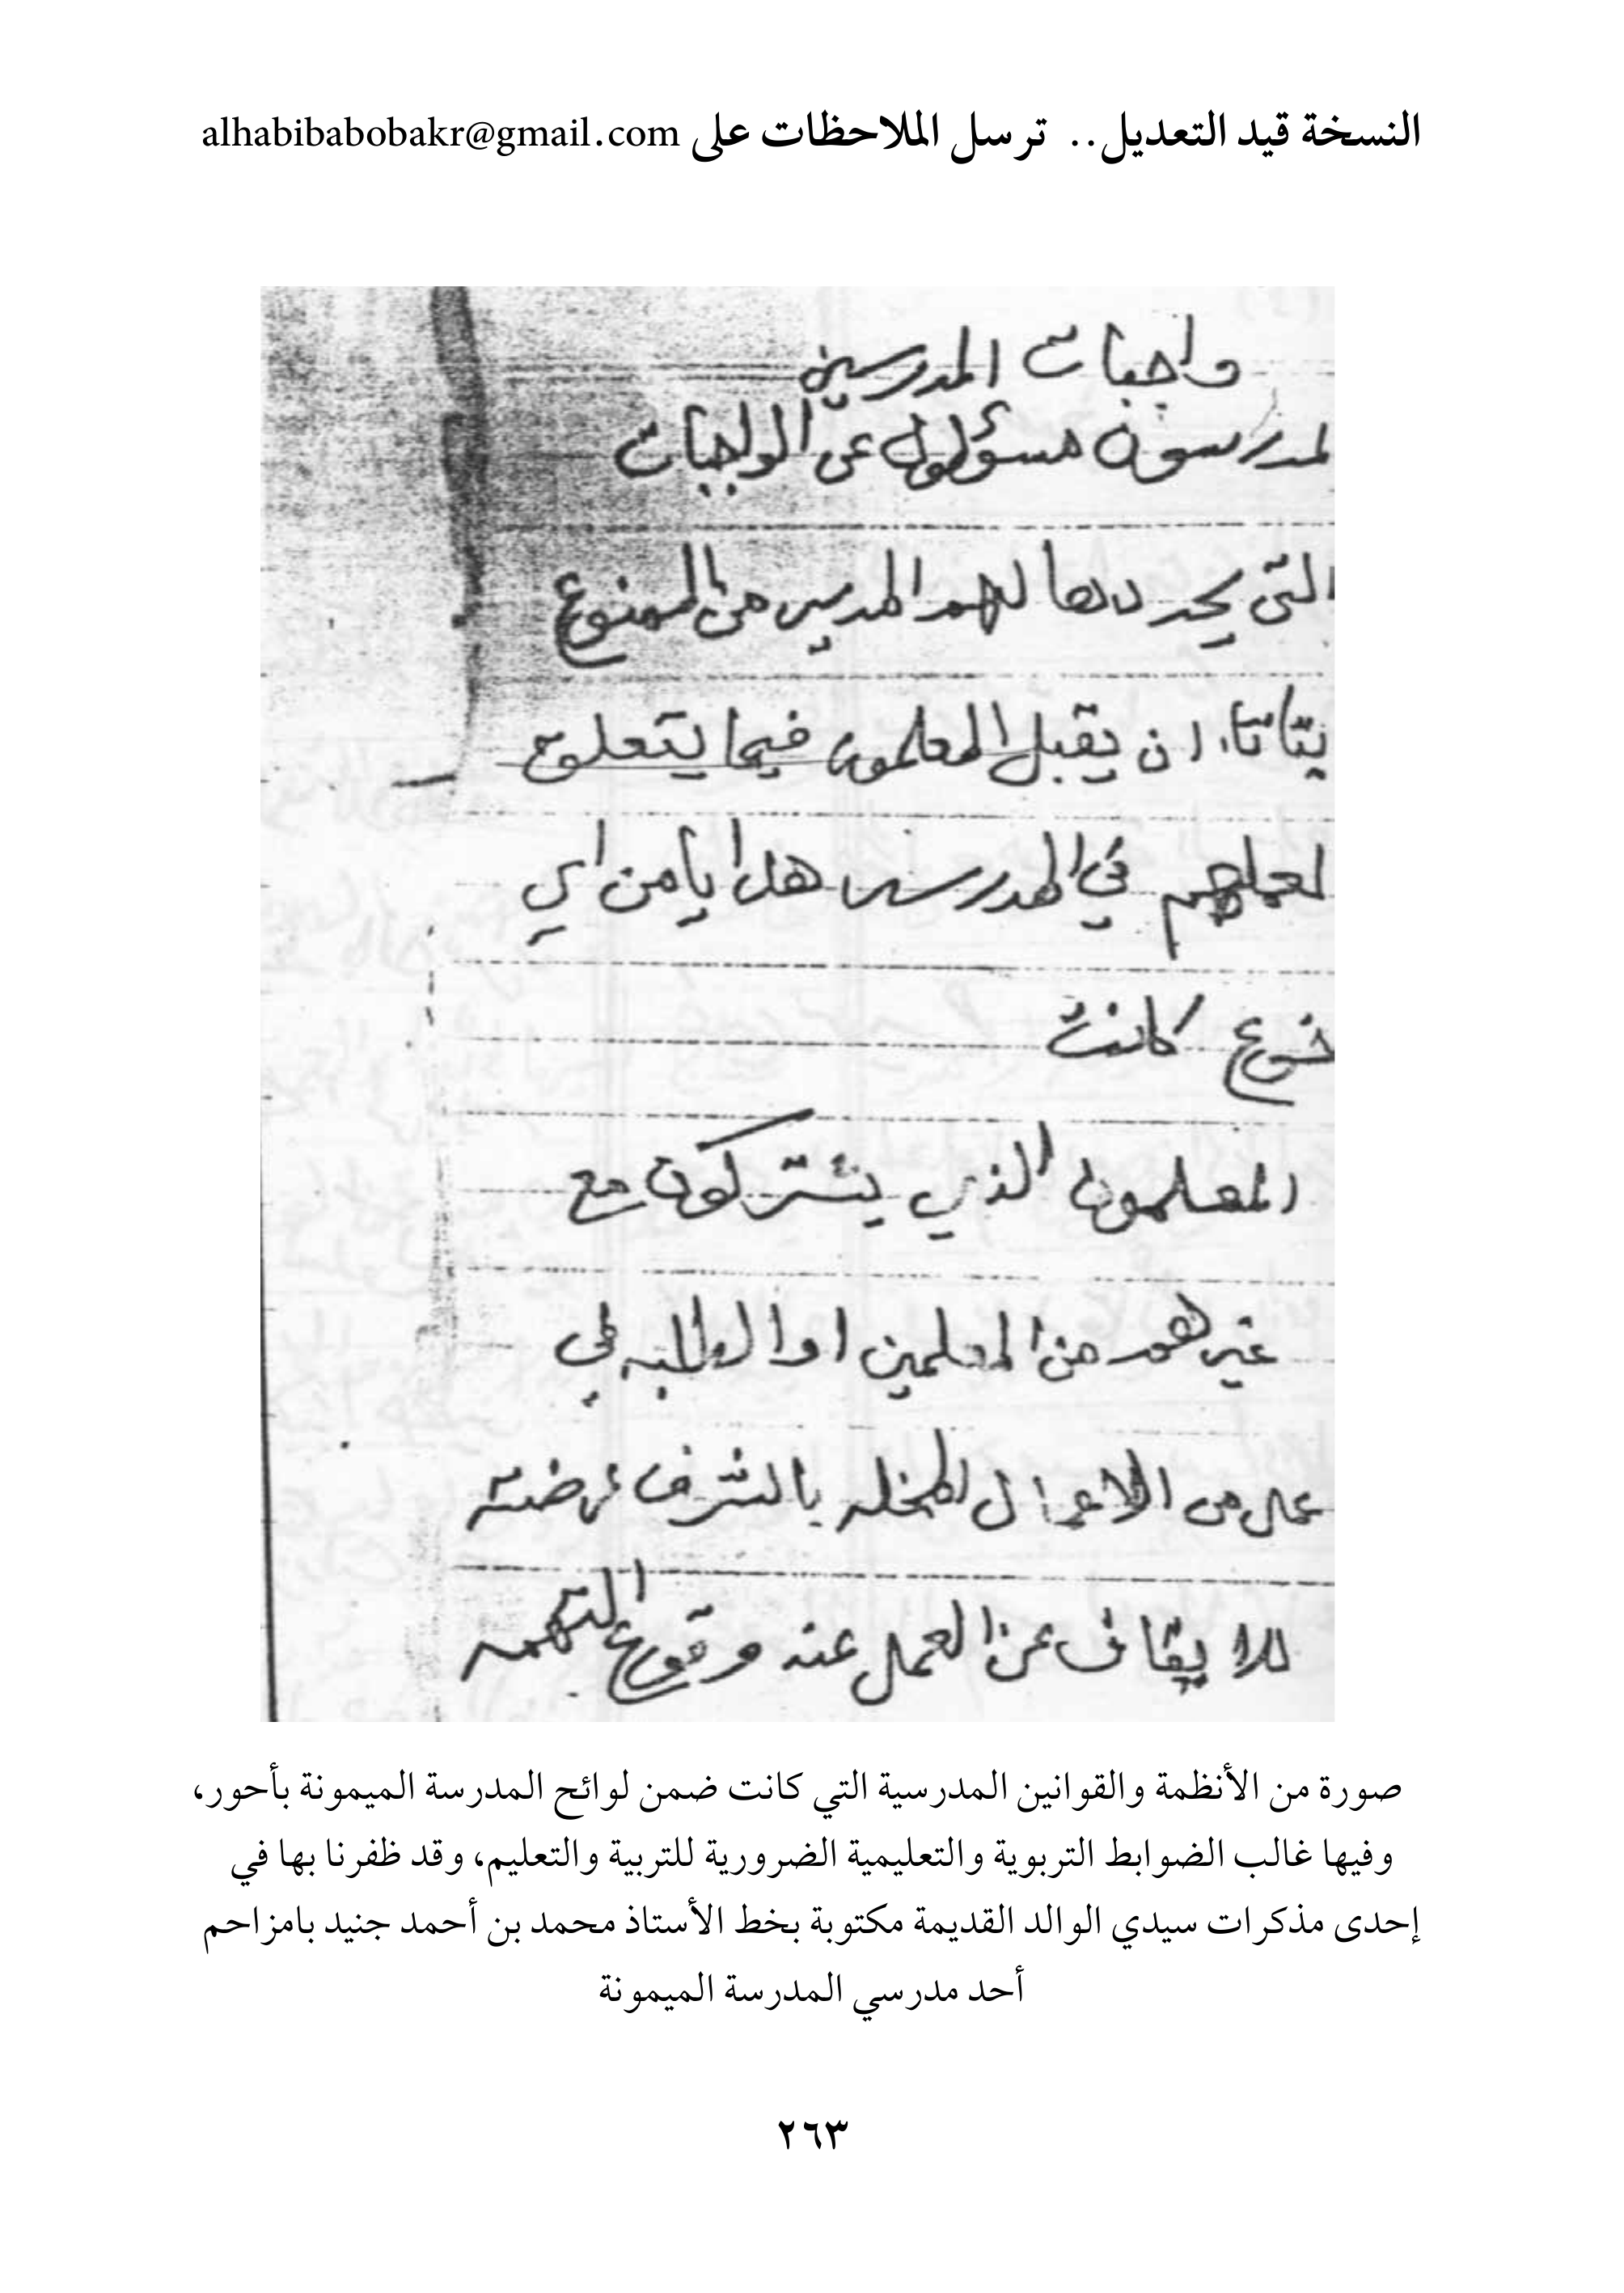 النسخة قيد التعديل.. ترسل الملاحظات على alhabibabobakr@gmail.com
واجبات المدرسين
لمدرسون مسؤلون عن الواجبات
التي يحددها لهم المدير من الممنوع
ان يقبل المعلمون فيما يتعلق
لعملهم في المدرسه هدايا من اي
نوع كانت
المعلمون الذي يشتركون مع
غيرهم من المعلمين او الطلبه في
عمل من الاعمال المخله بالشرف عرضته
للايقاف عن العمل عند وقوع التهمه
صورة من الأنظمة والقوانين المدرسية التي كانت ضمن لوائح المدرسة الميمونة بأحور،
وفيها غالب الضوابط التربوية والتعليمية الضرورية للتربية والتعليم، وقد ظفرنا بها في
إحدى مذكرات سيدي الوالد القديمة مكتوبة بخط الأستاذ محمد بن أحمد جنيد بامزاحم
أحد مدرسي المدرسة الميمونة
٢٦٣